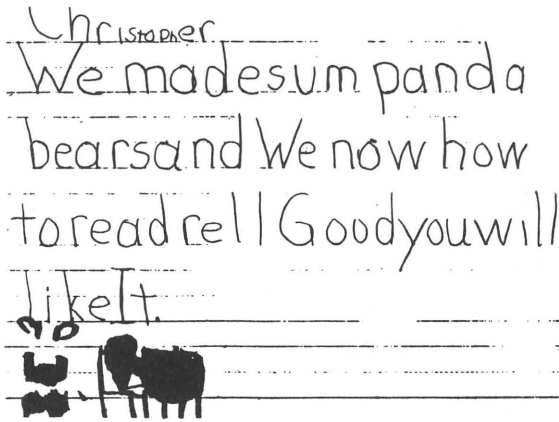 Christopher
We made sum panda
bears and We now how
to read rell Good you will
like It.